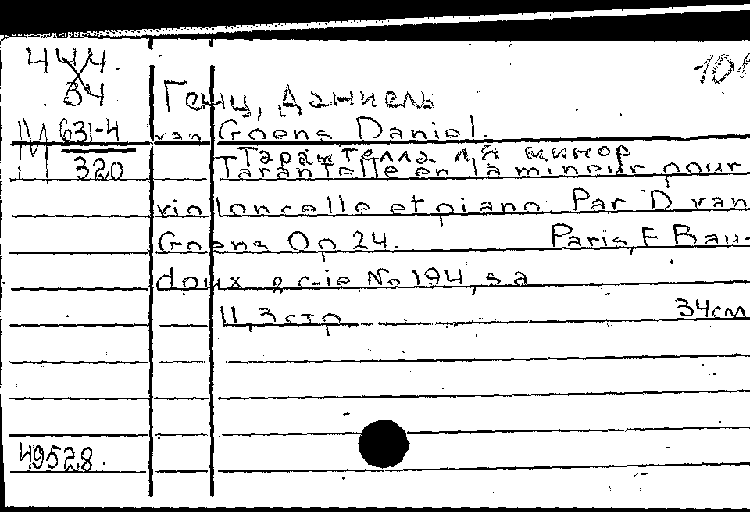 444.
108
84
Генц, Даниель
М 631-4
van Goens Daniel.
320
Тарантелла ля минор
Tarantelle en la mineur pour
violoncelle et piano. Par D van
Goens Op 24. Paris, E Bau-
doux et c-ie No 194, s a
11, 3 стр. 34см
49528.